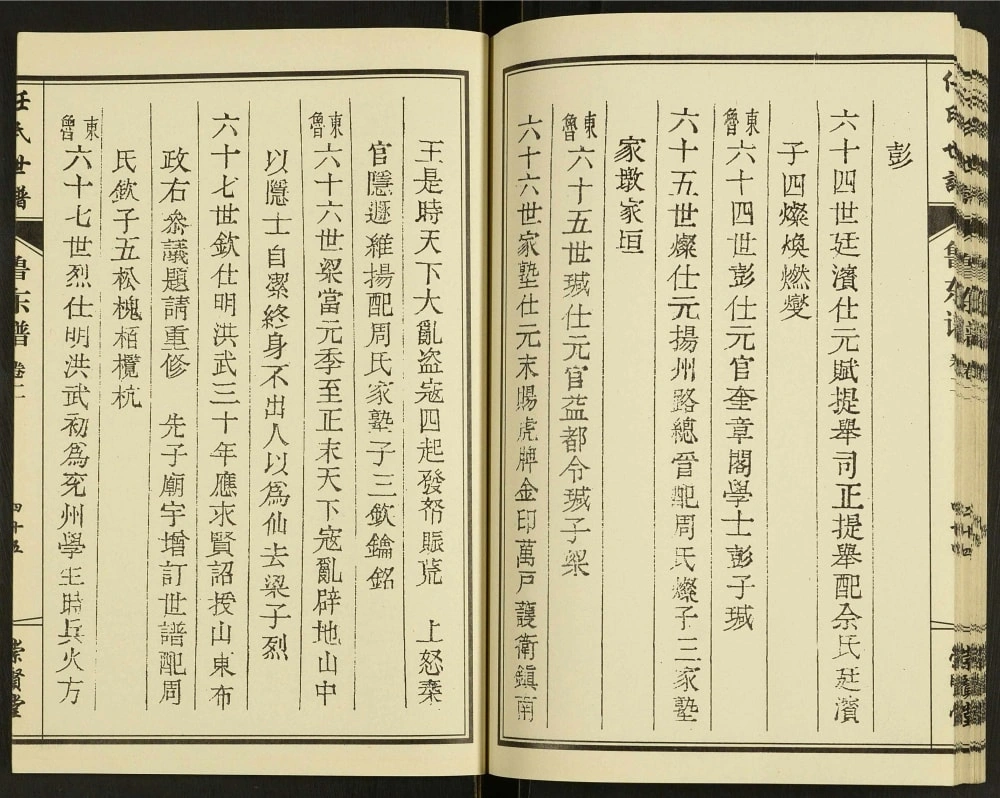 彭
六十四世廷濱仕元賦提舉司正提舉配余氏廷濱
子四燦煥燃燮
東魯六十四世彭仕元官奎章閣學士彭子珹
六十五世燦仕元揚州路總管配周氏燦子三家塾
家墩家垣
東魯六十五世珹仕元官益都令珹子梁
六十六世家塾仕元末賜虎牌金印萬戶護衛鎮南
王是時天下大亂盜寇四起發帑賑荒 上怒棄
官隱遯維揚配周氏家塾子三欽鑰銘
東魯六十六世梁當元季至正末天下寇亂辟地山中
以隱士自潔終身不出人以爲仙去梁子烈
六十七世欽仕明洪武三十年應求賢詔授山東布
政右叅議題請重修 先子廟宇增訂世譜配周
氏欽子五松槐栢欖杭
東魯六十七世烈仕明洪武初爲兖州學正時兵火方
任氏世譜 魯东谱 卷二 四十五 崇賢堂